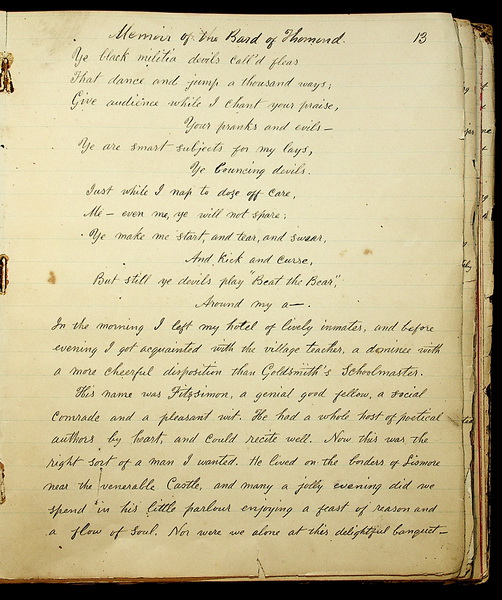 Memoir of the Bard of Thomond. 13
Ye black militia devils call'd fleas
That dance and jump a thousand ways;
Give audience while I chant your praise,
Your pranks and evils—
Ye are smart subjects for my lays,
Ye bouncing devils.
Just while I nap to doze off care,
Me— even me, ye will not spare;
Ye make me start, and tear, and swear,
And kick and curse,
But still ye devils play "Beat the Bear",
Around my a—.
In the morning I left my hotel of lively inmates, and before
evening I got acquainted with the village teacher, a dominee with
a more cheerful disposition than Goldsmith's Schoolmaster.
His name was Fitzsimon, a genial good fellow, a social
comrade and a pleasant wit. He had a whole host of poetical
authors by heart, and could recite well. Now this was the
right sort of a man I wanted. He lived on the borders of Lismore
near the venerable Castle, and many a jolly evening did we
spend in his little parlour enjoying a feast of reason and
a flow of soul. Nor were we alone at this delightful banquet—